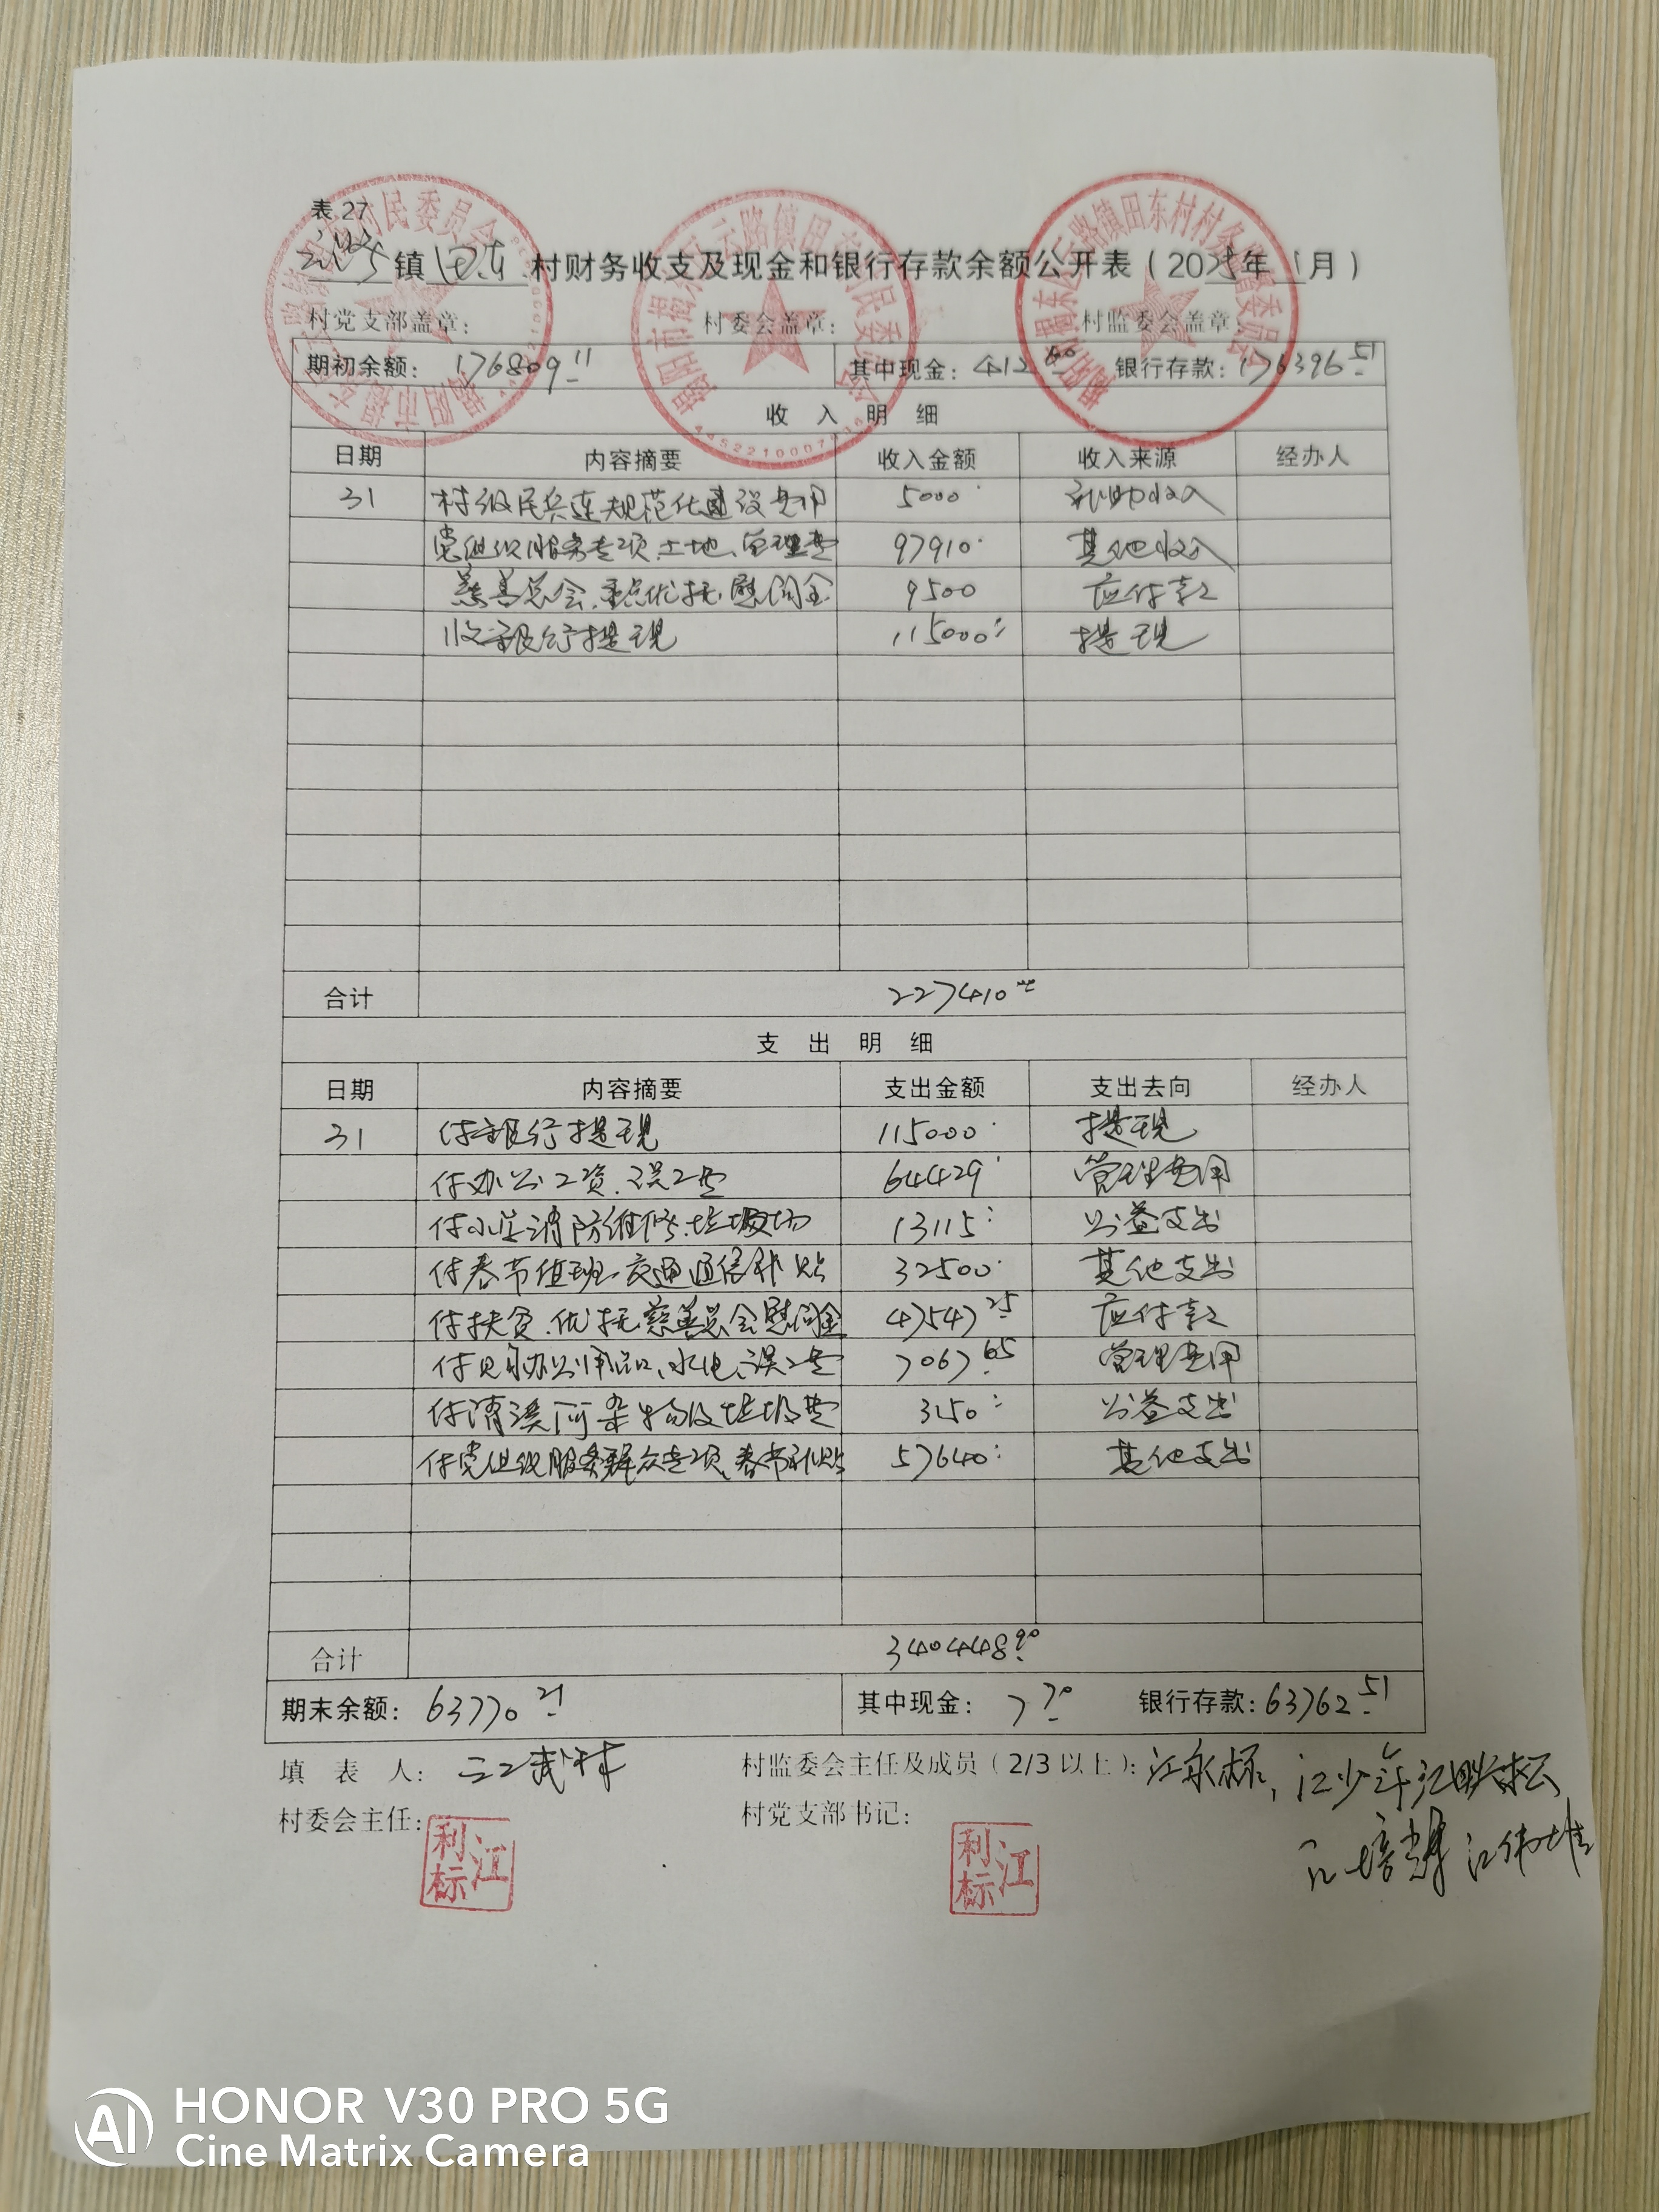 表 27
云路镇田东村财务收支及现金和银行存款余额公开表（2025年1月）
村党支部盖章： 村委会盖章： 村监委会盖章：
期初余额：176809.11 其中现金：412.60 银行存款：176396.51
收 入 明 细
日期 内容摘要 收入金额 收入来源 经办人
31 村级民兵连规范化建设费用 5000 补助收入
党组织服务专项、土地、管理费 97910 其他收入
慈善总会、重点优抚慰问金 9500 应付款
收银行提现 115000 提现
合计 227410.00
支 出 明 细
日期 内容摘要 支出金额 支出去向 经办人
31 付银行提现 115000 提现
付办公工资、误工费 64429 管理费用
付小学消防维修、垃圾场 13115 公益支出
付春节值班、交通通信补贴 32500 其他支出
付扶贫、优抚慈善总会慰问金 47547.25 应付款
付办公用品、水电、误工费 7067.65 管理费用
付清溪河杂物及垃圾费 3150 公益支出
付党组织服务群众专项、春节补贴 57640 其他支出
合计 340448.90
期末余额：63770.21 其中现金：7.70 银行存款：63762.51
填 表 人：江武林 村监委会主任及成员（2/3以上）：江永标，江少年
村委会主任：江利标 村党支部书记：江利标
江培辉 江伟雄
HONOR V30 PRO 5G
Cine Matrix Camera